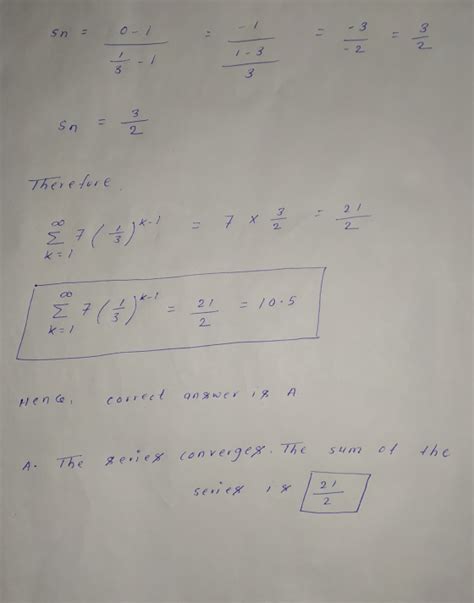 sn = 0-1 / (1/3 - 1) = -1 / ((1-3)/3) = -3/-2 = 3/2
sn = 3/2
Therefore,
∞ Σ k=1 7(1/3)^k-1 = 7 × 3/2 = 21/2
∞ Σ k=1 7(1/3)^k-1 = 21/2 = 10.5
Hence, correct answer is A
A. The series converges. The sum of the
series is 21/2